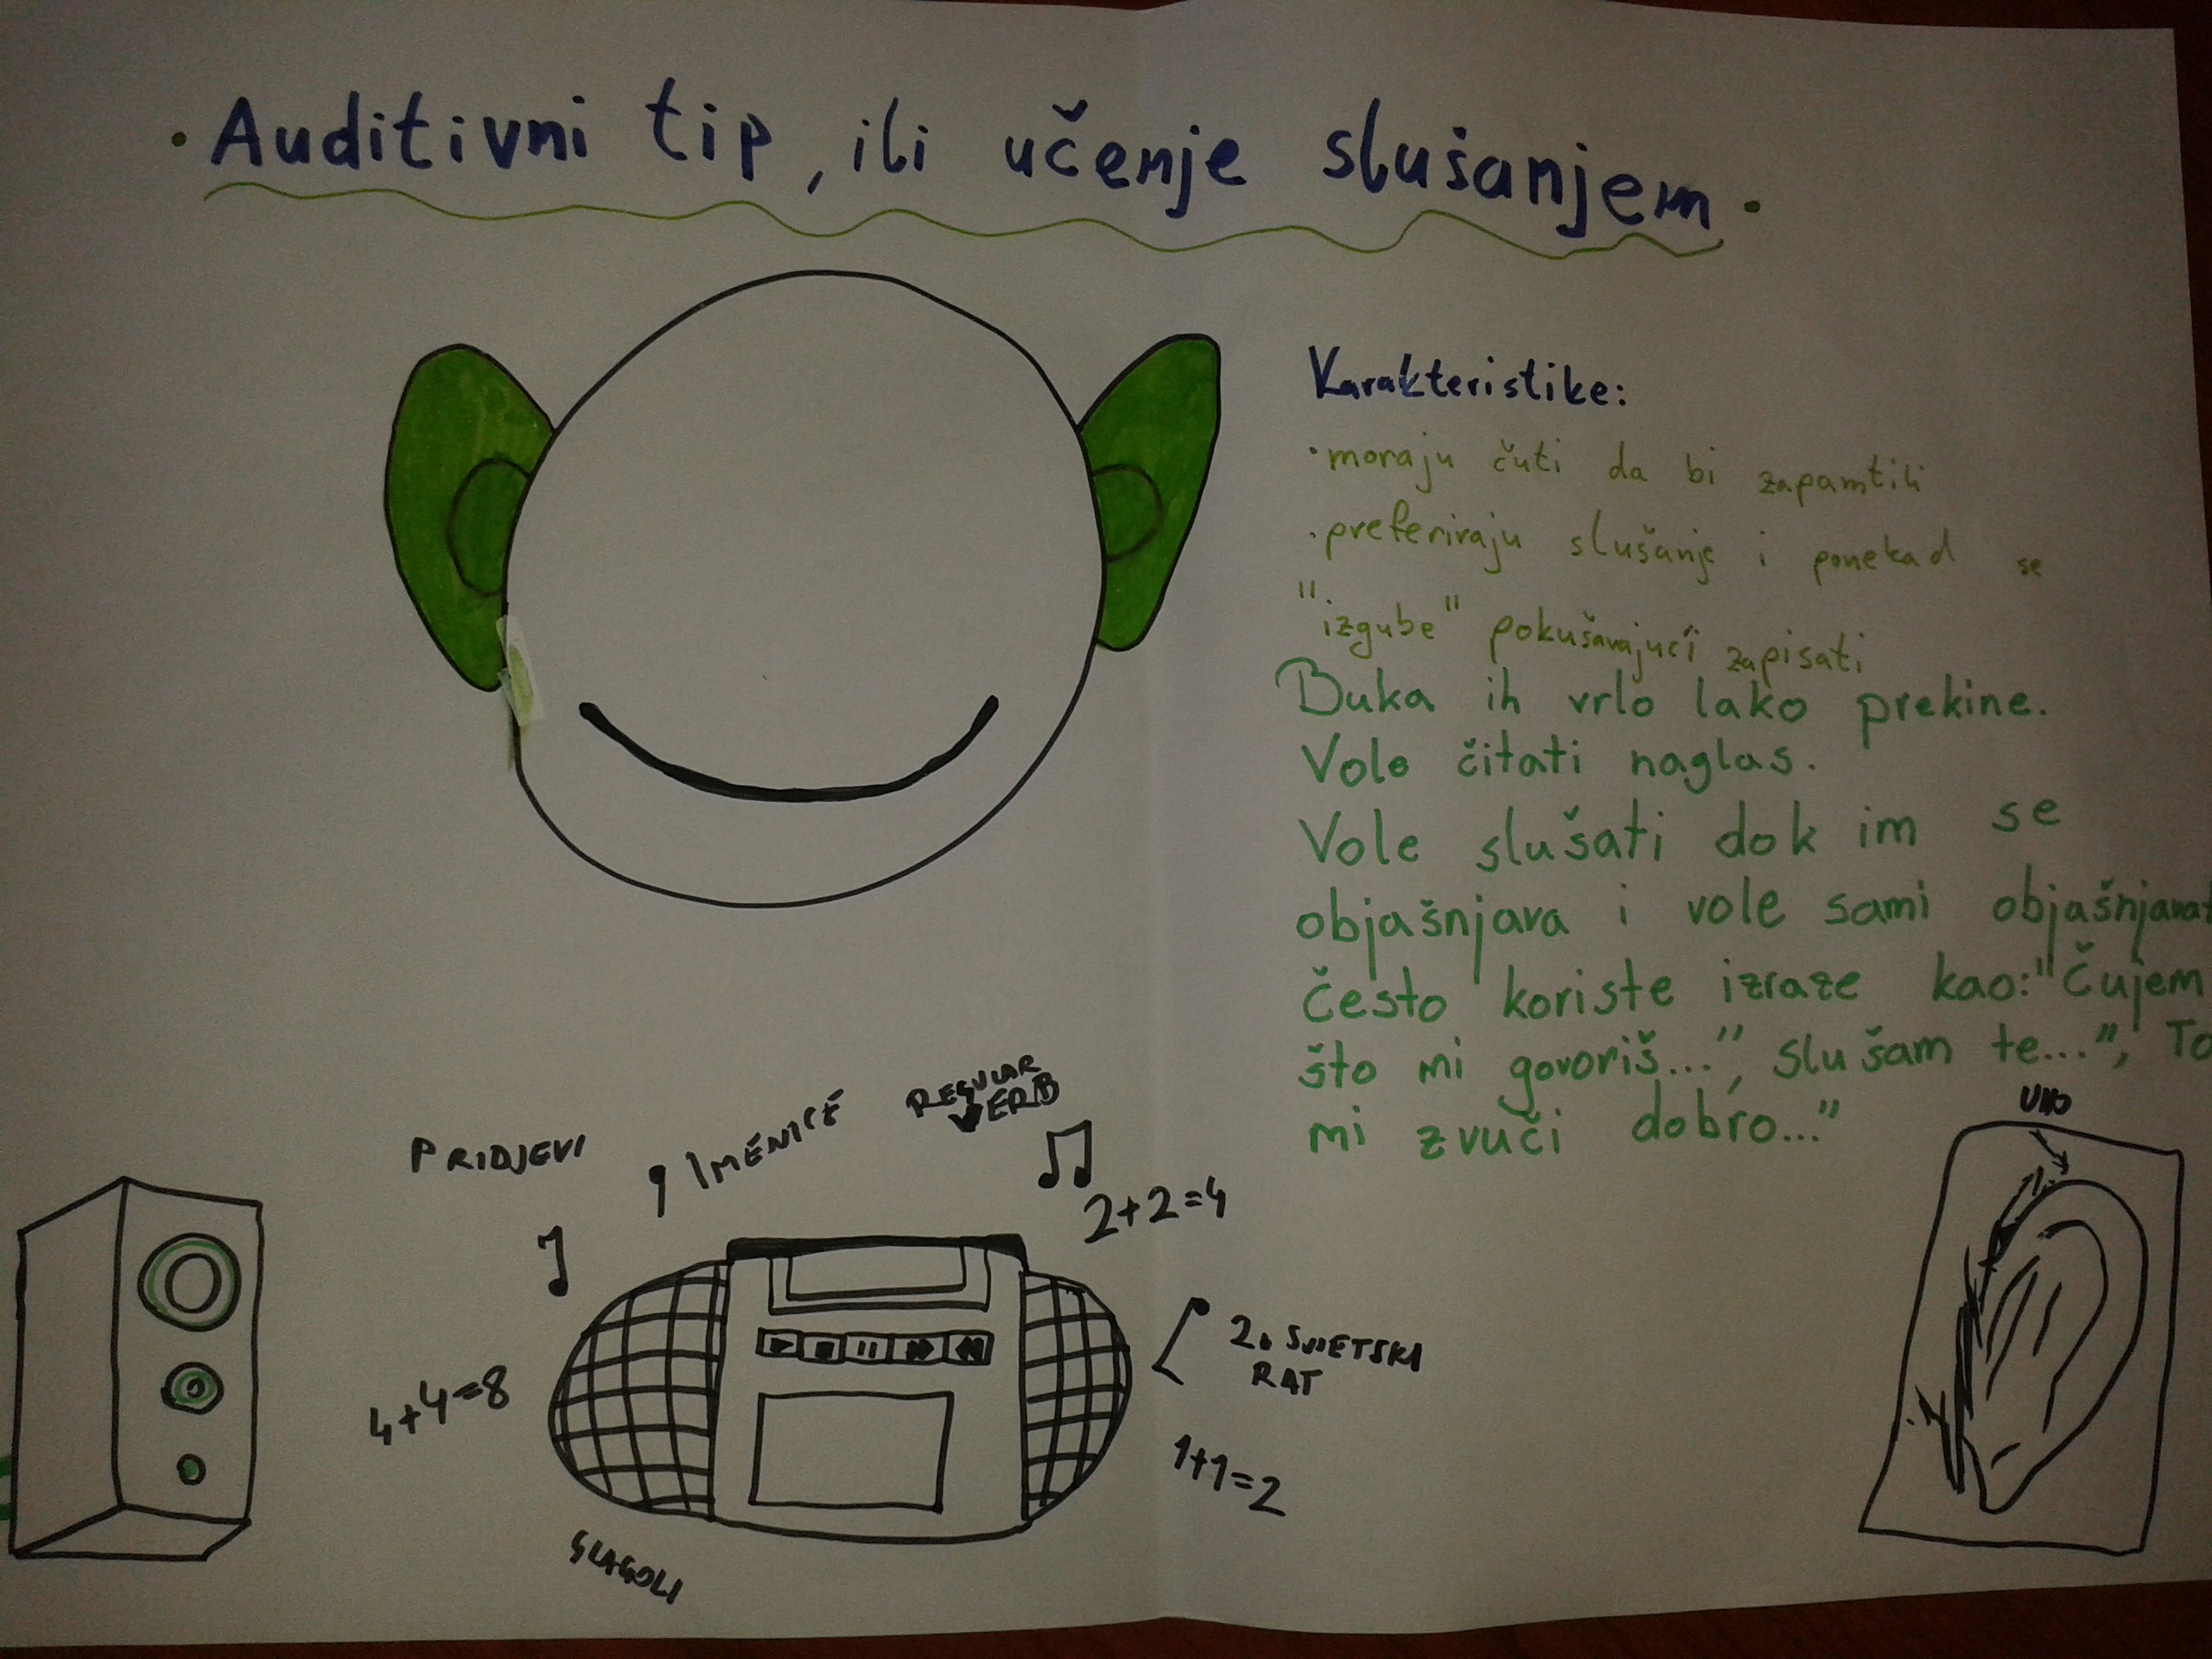 · Auditivni tip, ili učenje slušanjem ·
Karakteristike:
· moraju čuti da bi zapamtili
· preferiraju slušanje i ponekad se
"izgube" pokušavajući zapisati
Buka ih vrlo lako prekine.
Vole čitati naglas.
Vole slušati dok im se
objašnjava i vole sami objašnjavat
često koriste izraze kao: "Čujem
što mi govoriš...", slušam te...", To
mi zvuči dobro..."
UHO
PRIDJEVI
IMENICE
REGULAR
VERB
2+2=4
4+4=8
2. SVJETSKI
RAT
1+1=2
GLAGOLI